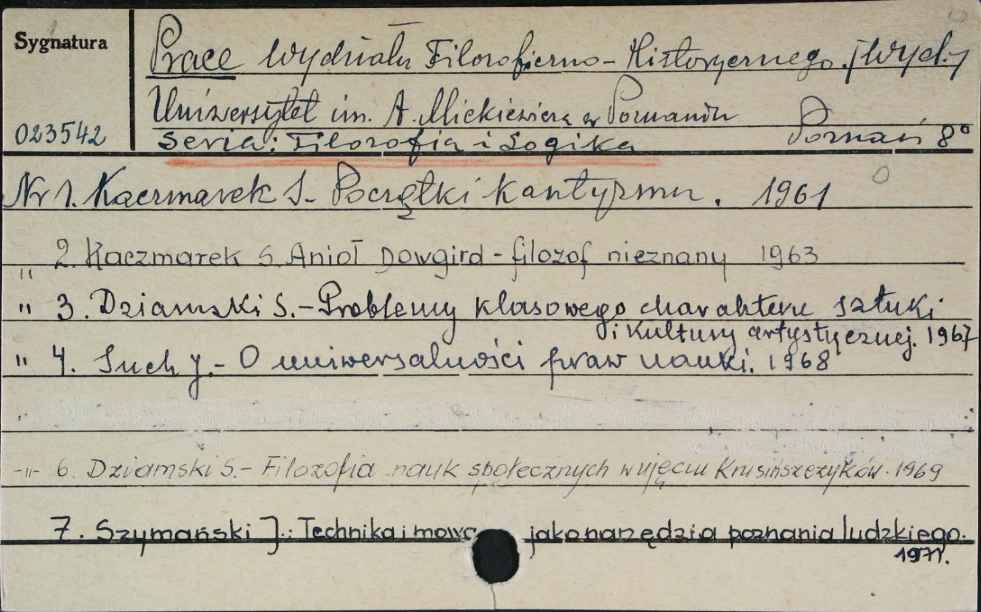 Sygnatura
Prace Wydziału Filozoficzno-Historycznego. [Wyd.]
Uniwersytet im. A. Mickiewicza w Poznaniu
023542 Seria: Filozofia i Logika Poznań 8°
Nr 1. Kaczmarek S. - Początki kantyzmu. 1961
" 2. Kaczmarek S. Anioł Dowgird - filozof nieznany 1963
" 3. Dziamski S. - Problemy klasowego charakteru sztuki
i kultury artystycznej. 1967
" 4. Such J. - O uniwersalności praw nauki. 1968
-"- 6. Dziamski S. - Filozofia nauk społecznych w ujęciu Krusińszczyków. 1969
7. Szymański J.: Technika i mowa jako narzędzia poznania ludzkiego.
1971.